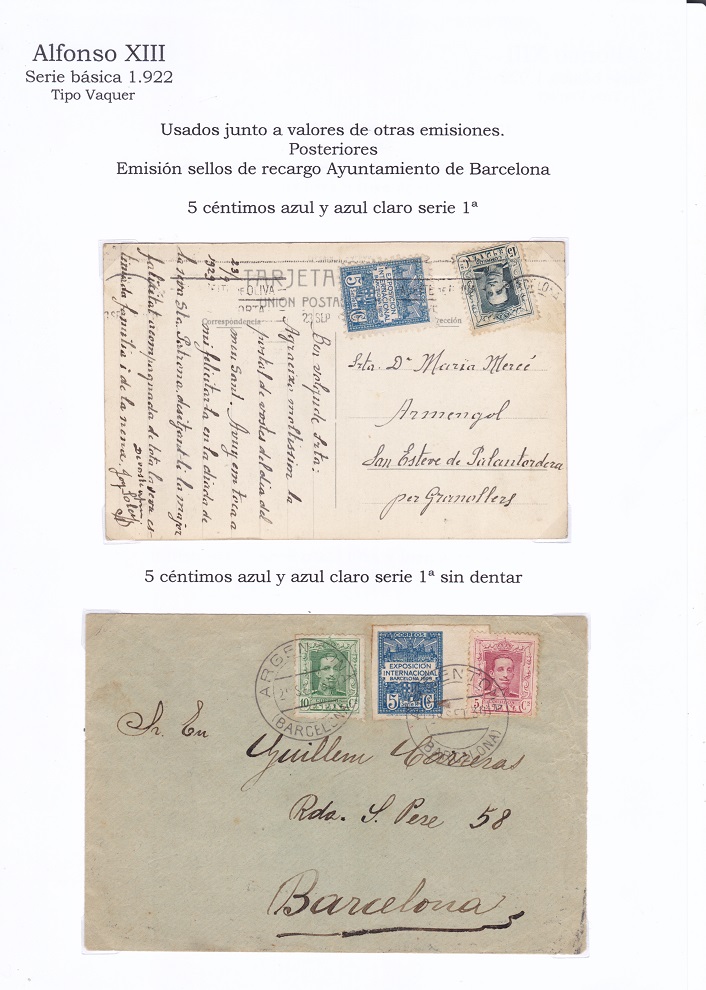 Alfonso XIII
Serie básica 1.922
Tipo Vaquer
Usados junto a valores de otras emisiones.
Posteriores
Emisión sellos de recargo Ayuntamiento de Barcelona
5 céntimos azul y azul claro serie 1ª
TARJETA
UNION POSTA
Correspondencia
23 SEP
EXPOSICIÓN
INTERNACIONAL
5 Cs
15
BARCELON
23/9
1929
Bon volguda Srta:
Agraeixo moltissim la
postal de vostés del dia del
meu Sant. Avuy em toca a
mi felicitarla en la diada de
la seva Sta. Patrona, desitjant-li la major
felicitat acompagnada de tota la seva es-
timada familia i de la nena.
Srta. Dª Maria Mercé
Armengol
San Esteve de Palautordera
per Granollers
5 céntimos azul y azul claro serie 1ª sin dentar
ARGENTON
(BARCELONA)
10 Cs
CORREOS
EXPOSICIÓN
INTERNACIONAL
BARCELONA 1929
5 céntimos Cs
5 Cs
ENTON
(BARCELONA)
Sr. En
Guillem Carreras
Rda. S. Pere 58
Barcelona